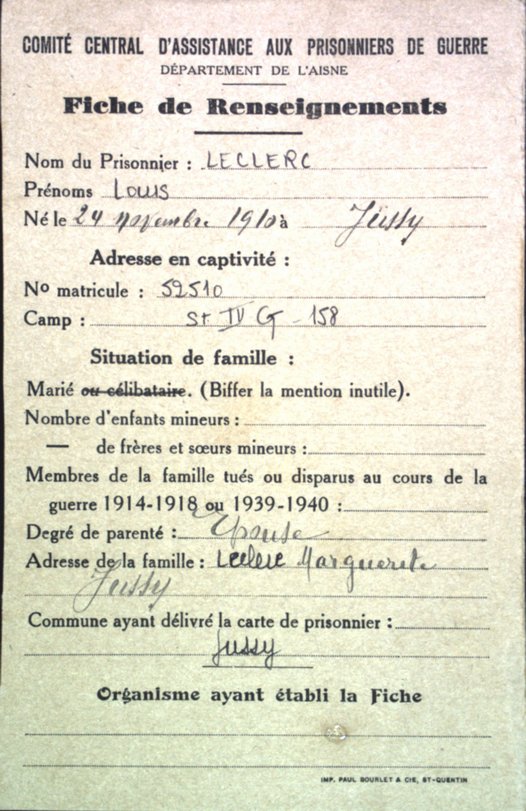 COMITÉ CENTRAL D'ASSISTANCE AUX PRISONNIERS DE GUERRE
DÉPARTEMENT DE L'AISNE
Fiche de Renseignements
Nom du Prisonnier : LECLERC
Prénoms Louis
Né le 24 novembre 1910 à Jussy
Adresse en captivité :
No matricule : 52510
Camp : St IV G - 158
Situation de famille :
Marié ou célibataire. (Biffer la mention inutile).
Nombre d'enfants mineurs :
— de frères et sœurs mineurs :
Membres de la famille tués ou disparus au cours de la
guerre 1914-1918 ou 1939-1940 :
Degré de parenté : Epouse
Adresse de la famille : Leclerc Marguerite
Jussy
Commune ayant délivré la carte de prisonnier :
Jussy
Organisme ayant établi la Fiche
IMP. PAUL BOURLET & CIE, ST-QUENTIN